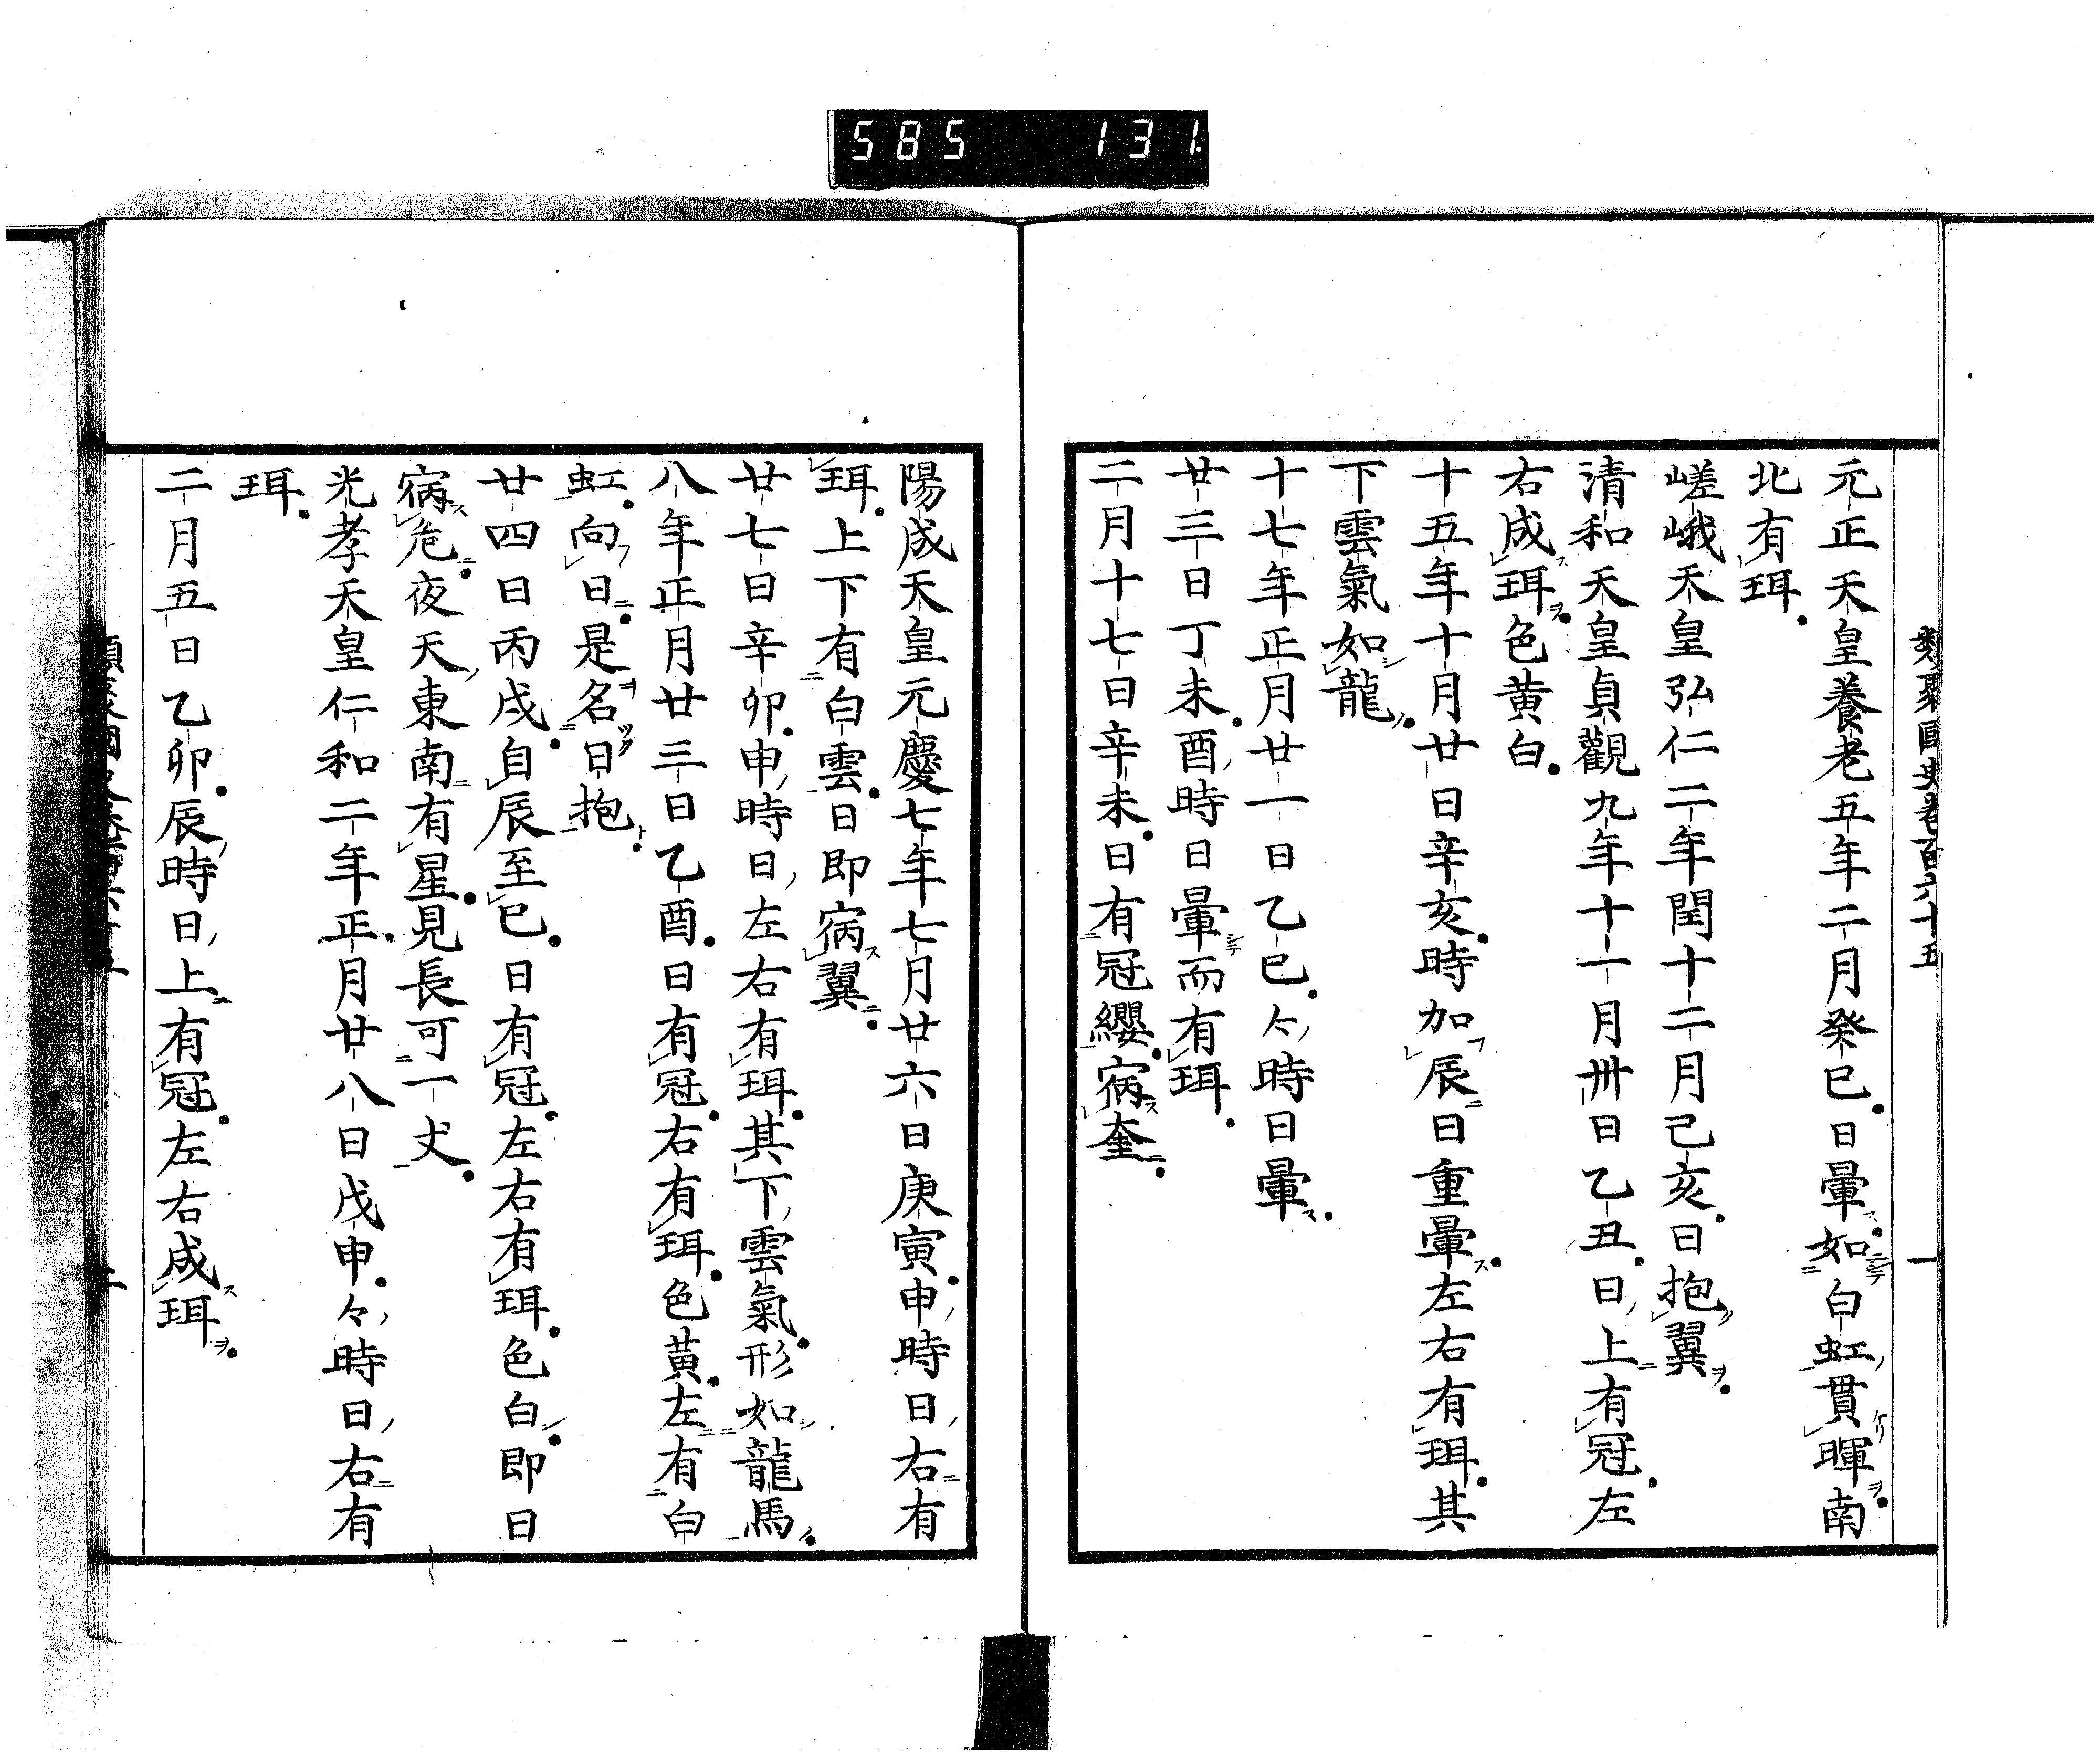 585 131
類聚國史卷百六十五 一
元正天皇養老五年二月癸巳日暈如白虹貫暉南
北有珥
嵯峨天皇弘仁二年閏十二月己亥日抱翼
清和天皇貞觀九年十一月卅日乙丑日上有冠左
右成珥色黄白
十五年十月廿日辛亥時加辰日重暈左右有珥其
下雲氣如龍
十七年正月廿一日乙巳々時日暈
廿三日丁未酉時日暈而有珥
二月十七日辛未日有冠纓病奎
陽成天皇元慶七年七月廿六日庚寅申時日右有
珥上下有白雲日即病翼
廿七日辛卯申時日左右有珥其下雲氣形如龍馬
八年正月廿三日乙酉日有冠右有珥色黄左有白
虹向日是名日抱
廿四日丙戌自辰至巳日有冠左右有珥色白即日
病危夜天東南有星見長可一丈
光孝天皇仁和二年正月廿八日戊申々時日右有
珥
二月五日乙卯辰時日上有冠左右成珥